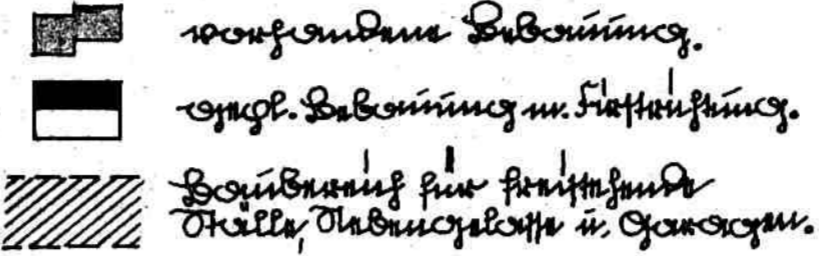 vorhandene Bebauung.
gepl. Bebauung m. Firstrichtung.
Baubereich für freistehende
Ställe, Nebengelasse u. Garagen.